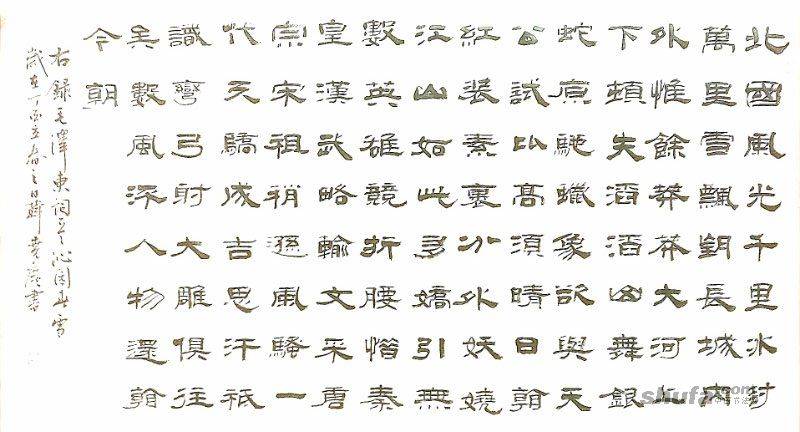 北國風光千里冰封
萬里雪飄望長城內
外惟餘莽莽大河上
下頓失滔滔山舞銀
蛇原馳蠟象欲與天
公試比高須晴日看
紅裝素裹分外妖嬈
江山如此多嬌引無
數英雄競折腰惜秦
皇漢武略輸文采唐
宗宋祖稍遜風騷一
代天驕成吉思汗祗
識彎弓射大雕俱往
矣數風流人物還看
今朝
右録毛澤東詞沁園春雪
歲在丁酉春之日韓書
shufa.com